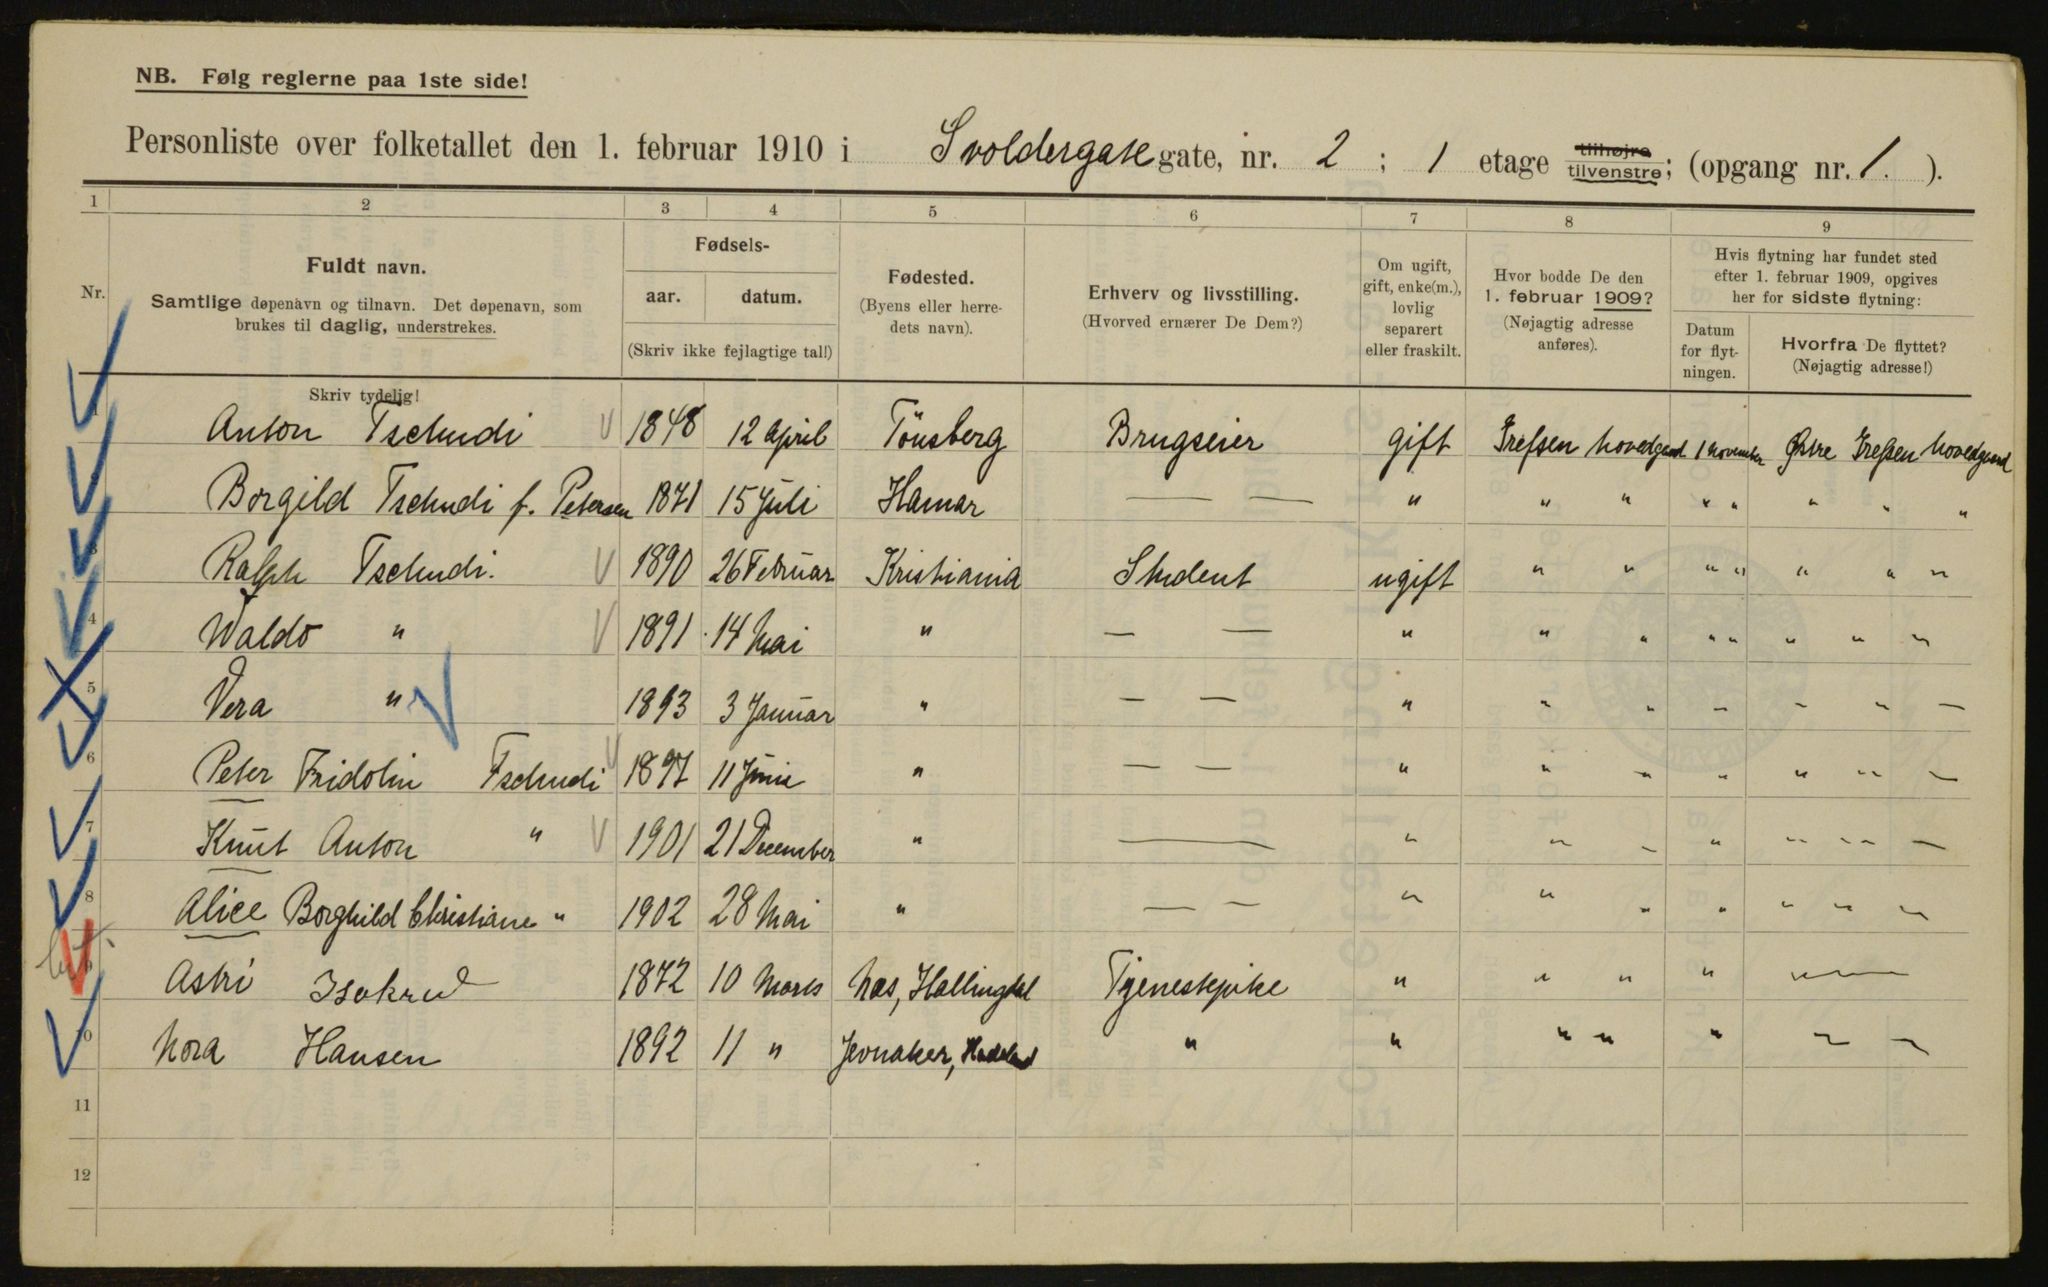 NB. Følg reglerne paa 1ste side!
Personliste over folketallet den 1. februar 1910 i Svoldergate gate, nr. 2 ; 1 etage tilhøjre tilvenstre; (opgang nr. 1. ).
1 2 3 4 5 6 7 8 9
Nr.
Fuldt navn.
Samtlige døpenavn og tilnavn. Det døpenavn, som
brukes til daglig, understrekes.
Skriv tydelig!
Fødsels-
aar. datum.
(Skriv ikke fejlagtige tal!)
Fødested.
(Byens eller herre-
dets navn).
Erhverv og livsstilling.
(Hvorved ernærer De Dem?)
Om ugift,
gift, enke(m.),
lovlig
separert
eller fraskilt.
Hvor bodde De den
1. februar 1909?
(Nøjagtig adresse
anføres).
Hvis flytning har fundet sted
efter 1. februar 1909, opgives
her for sidste flytning:
Datum
for flyt-
ningen.
Hvorfra De flyttet?
(Nøjagtig adresse!)
Anton Tschudi 1848 12 April Tönsberg Brugseier gift Grefsen hovedgaard 1 november Østre Grefsen hovedgaard
Borgild Tschudi f. Petersen 1871 15 Juli Hamar — — " " " " " " " "
3 Ralph Tschudi. 1890 26 Februar Kristiania Student ugift " " " " " " "
4 Waldo " 1891 14 Mai " — — " " " " " " " "
5 Vera " 1893 3 Januar " — — " " " " " " "
6 Peter Fridolin Tschudi 1897 11 Juni " — — " " " " " " "
7 Knut Anton " 1901 21 December " — " " " " " " "
8 Alice Borghild Christiane " 1902 28 Mai " — — " " " " " " "
9 Astri Isakrud 1872 10 Mars Næs, Hallingdal Tjenestepike " " " " "
10 Nora Hansen 1892 11 " Jevnaker, Hadeland " " " " " " "
11
12